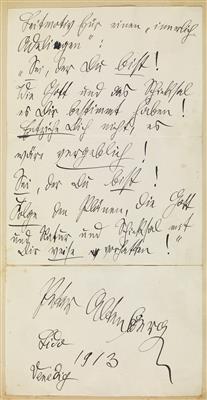 Leitmotiv für einen „innerlich
Adeligen":
„Sei, der Du bist!
Wie Gott und das Schicksal
es Dir bestimmt haben!
Entziehe Dich nicht, es
wäre vergeblich!
Sei, der Du bist!
Folge den Plänen, die Gott
und Natur und Schicksal mit
Dir weise vorhatten!"
Peter Altenberg
Lido
1913
Venedig